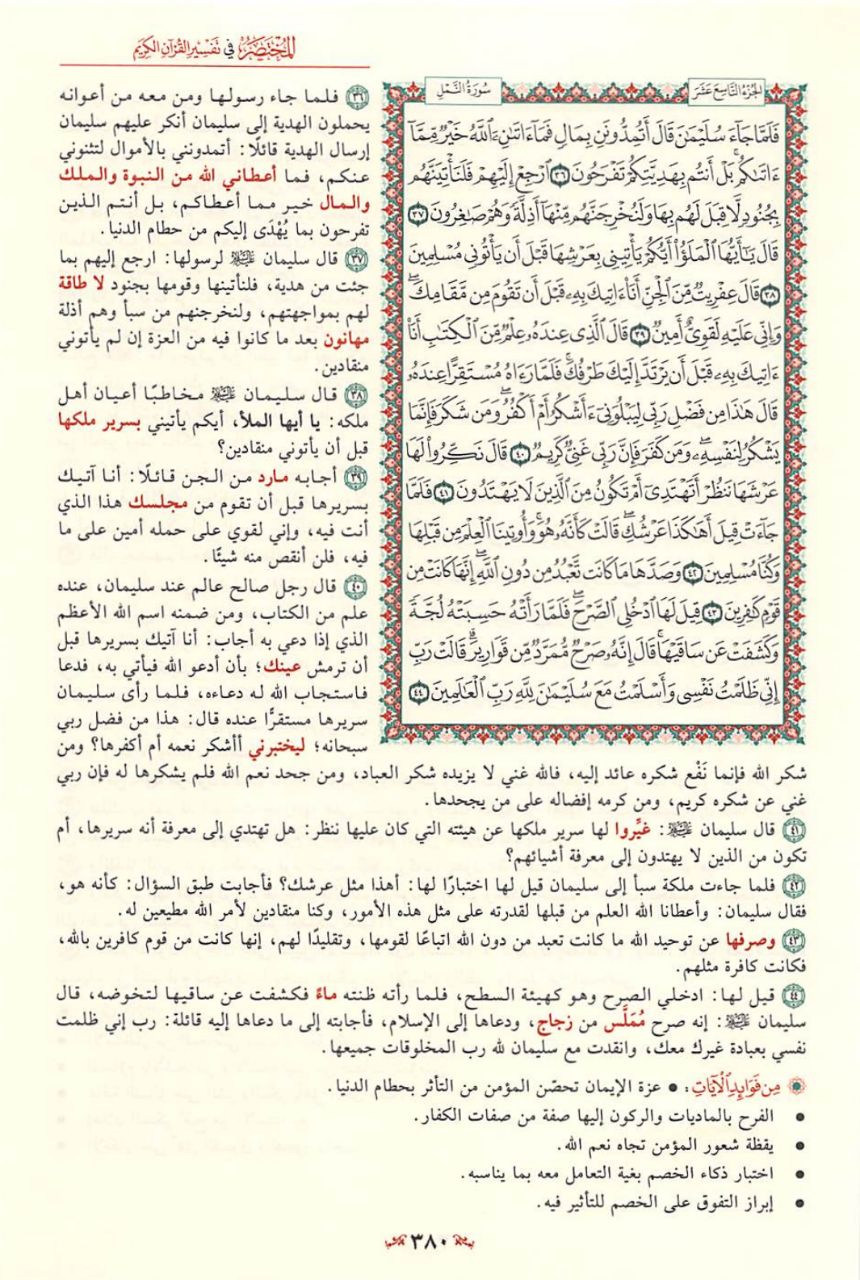 المختصر في تفسير القرآن الكريم
الجزء التاسع عشر
سورة النمل
فَلَمَّا جَآءَ سُلَيۡمَٰنَ قَالَ أَتُمِدُّونَنِ بِمَالٖ فَمَآ ءَاتَىٰنِۦَ ٱللَّهُ خَيۡرٞ مِّمَّآ
ءَاتَىٰكُمۚ بَلۡ أَنتُم بِهَدِيَّتِكُمۡ تَفۡرَحُونَ ٣٦ ٱرۡجِعۡ إِلَيۡهِمۡ فَلَنَأۡتِيَنَّهُم
بِجُنُودٖ لَّا قِبَلَ لَهُم بِهَا وَلَنُخۡرِجَنَّهُم مِّنۡهَآ أَذِلَّةٗ وَهُمۡ صَٰغِرُونَ ٣٧
قَالَ يَٰٓأَيُّهَا ٱلۡمَلَؤُاْ أَيُّكُمۡ يَأۡتِينِي بِعَرۡشِهَا قَبۡلَ أَن يَأۡتُونِي مُسۡلِمِينَ
٣٨ قَالَ عِفۡرِيتٞ مِّنَ ٱلۡجِنِّ أَنَا۠ ءَاتِيكَ بِهِۦ قَبۡلَ أَن تَقُومَ مِن مَّقَامِكَۖ
وَإِنِّي عَلَيۡهِ لَقَوِيٌّ أَمِينٞ ٣٩ قَالَ ٱلَّذِي عِندَهُۥ عِلۡمٞ مِّنَ ٱلۡكِتَٰبِ أَنَا۠
ءَاتِيكَ بِهِۦ قَبۡلَ أَن يَرۡتَدَّ إِلَيۡكَ طَرۡفُكَۚ فَلَمَّا رَءَاهُ مُسۡتَقِرًّا عِندَهُۥ
قَالَ هَٰذَا مِن فَضۡلِ رَبِّي لِيَبۡلُوَنِيٓ ءَأَشۡكُرُ أَمۡ أَكۡفُرُۖ وَمَن شَكَرَ فَإِنَّمَا
يَشۡكُرُ لِنَفۡسِهِۦۖ وَمَن كَفَرَ فَإِنَّ رَبِّي غَنِيّٞ كَرِيمٞ ٤٠ قَالَ نَكِّرُواْ لَهَا
عَرۡشَهَا نَنظُرۡ أَتَهۡتَدِيٓ أَمۡ تَكُونُ مِنَ ٱلَّذِينَ لَا يَهۡتَدُونَ ٤١ فَلَمَّا
جَآءَتۡ قِيلَ أَهَٰكَذَا عَرۡشُكِۖ قَالَتۡ كَأَنَّهُۥ هُوَۚ وَأُوتِينَا ٱلۡعِلۡمَ مِن قَبۡلِهَا
وَكُنَّا مُسۡلِمِينَ ٤٢ وَصَدَّهَا مَا كَانَت تَّعۡبُدُ مِن دُونِ ٱللَّهِۖ إِنَّهَا كَانَتۡ مِن
قَوۡمٖ كَٰفِرِينَ ٤٣ قِيلَ لَهَا ٱدۡخُلِي ٱلصَّرۡحَۖ فَلَمَّا رَأَتۡهُ حَسِبَتۡهُ لُجَّةٗ
وَكَشَفَتۡ عَن سَاقَيۡهَاۚ قَالَ إِنَّهُۥ صَرۡحٞ مُّمَرَّدٞ مِّن قَوَارِيرَۗ قَالَتۡ رَبِّ
إِنِّي ظَلَمۡتُ نَفۡسِي وَأَسۡلَمۡتُ مَعَ سُلَيۡمَٰنَ لِلَّهِ رَبِّ ٱلۡعَٰلَمِينَ ٤٤
٣٦ فلما جاء رسولها ومن معه من أعوانه
يحملون الهدية إلى سليمان أنكر عليهم سليمان
إرسال الهدية قائلًا: أتمدونني بالأموال لتثنوني
عنكم، فما أعطاني الله من النبوة والملك
والمال خير مما أعطاكم، بل أنتم الذين
تفرحون بما يُهْدَى إليكم من حطام الدنيا.
٣٧ قال سليمان ﷺ لرسولها: ارجع إليهم بما
جئت من هدية، فلنأتينها وقومها بجنود لا طاقة
لهم بمواجهتهم، ولنخرجنهم من سبأ وهم أذلة
مهانون بعد ما كانوا فيه من العزة إن لم يأتوني
منقادين.
٣٨ قال سليمان ﷺ مخاطبًا أعيان أهل
ملكه: يا أيها الملأ، أيكم يأتيني بسرير ملكها
قبل أن يأتوني منقادين؟
٣٩ أجابه مارد من الجن قائلًا: أنا آتيك
بسريرها قبل أن تقوم من مجلسك هذا الذي
أنت فيه، وإني لقوي على حمله أمين على ما
فيه، فلن أنقص منه شيئًا.
٤٠ قال رجل صالح عالم عند سليمان، عنده
علم من الكتاب، ومن ضمنه اسم الله الأعظم
الذي إذا دعي به أجاب: أنا آتيك بسريرها قبل
أن ترمش عينك؛ بأن أدعو الله فيأتي به، فدعا
فاستجاب الله له دعاءه، فلما رأى سليمان
سريرها مستقرًّا عنده قال: هذا من فضل ربي
سبحانه؛ ليختبرني أأشكر نعمه أم أكفرها؟ ومن
شكر الله فإنما نَفْع شكره عائد إليه، فالله غني لا يزيده شكر العباد، ومن جحد نعم الله فلم يشكرها له فإن ربي
غني عن شكره كريم، ومن كرمه إفضاله على من يجحدها.
٤١ قال سليمان ﷺ: غيِّروا لها سرير ملكها عن هيئته التي كان عليها ننظر: هل تهتدي إلى معرفة أنه سريرها، أم
تكون من الذين لا يهتدون إلى معرفة أشيائهم؟
٤٢ فلما جاءت ملكة سبأ إلى سليمان قيل لها اختبارًا لها: أهذا مثل عرشك؟ فأجابت طبق السؤال: كأنه هو،
فقال سليمان: وأعطانا الله العلم من قبلها لقدرته على مثل هذه الأمور، وكنا منقادين لأمر الله مطيعين له.
٤٣ وصرفها عن توحيد الله ما كانت تعبد من دون الله اتباعًا لقومها، وتقليدًا لهم، إنها كانت من قوم كافرين بالله،
فكانت كافرة مثلهم.
٤٤ قيل لها: ادخلي الصرح وهو كهيئة السطح، فلما رأته ظنته ماءً فكشفت عن ساقيها لتخوضه، قال
سليمان ﷺ: إنه صرح مُمَلَّس من زجاج، ودعاها إلى الإسلام، فأجابته إلى ما دعاها إليه قائلة: رب إني ظلمت
نفسي بعبادة غيرك معك، وانقدت مع سليمان لله رب المخلوقات جميعها.
من فوائد الآيات: • عزة الإيمان تحصّن المؤمن من التأثر بحطام الدنيا.
• الفرح بالماديات والركون إليها صفة من صفات الكفار.
• يقظة شعور المؤمن تجاه نعم الله.
• اختبار ذكاء الخصم بغية التعامل معه بما يناسبه.
• إبراز التفوق على الخصم للتأثير فيه.
٣٨٠